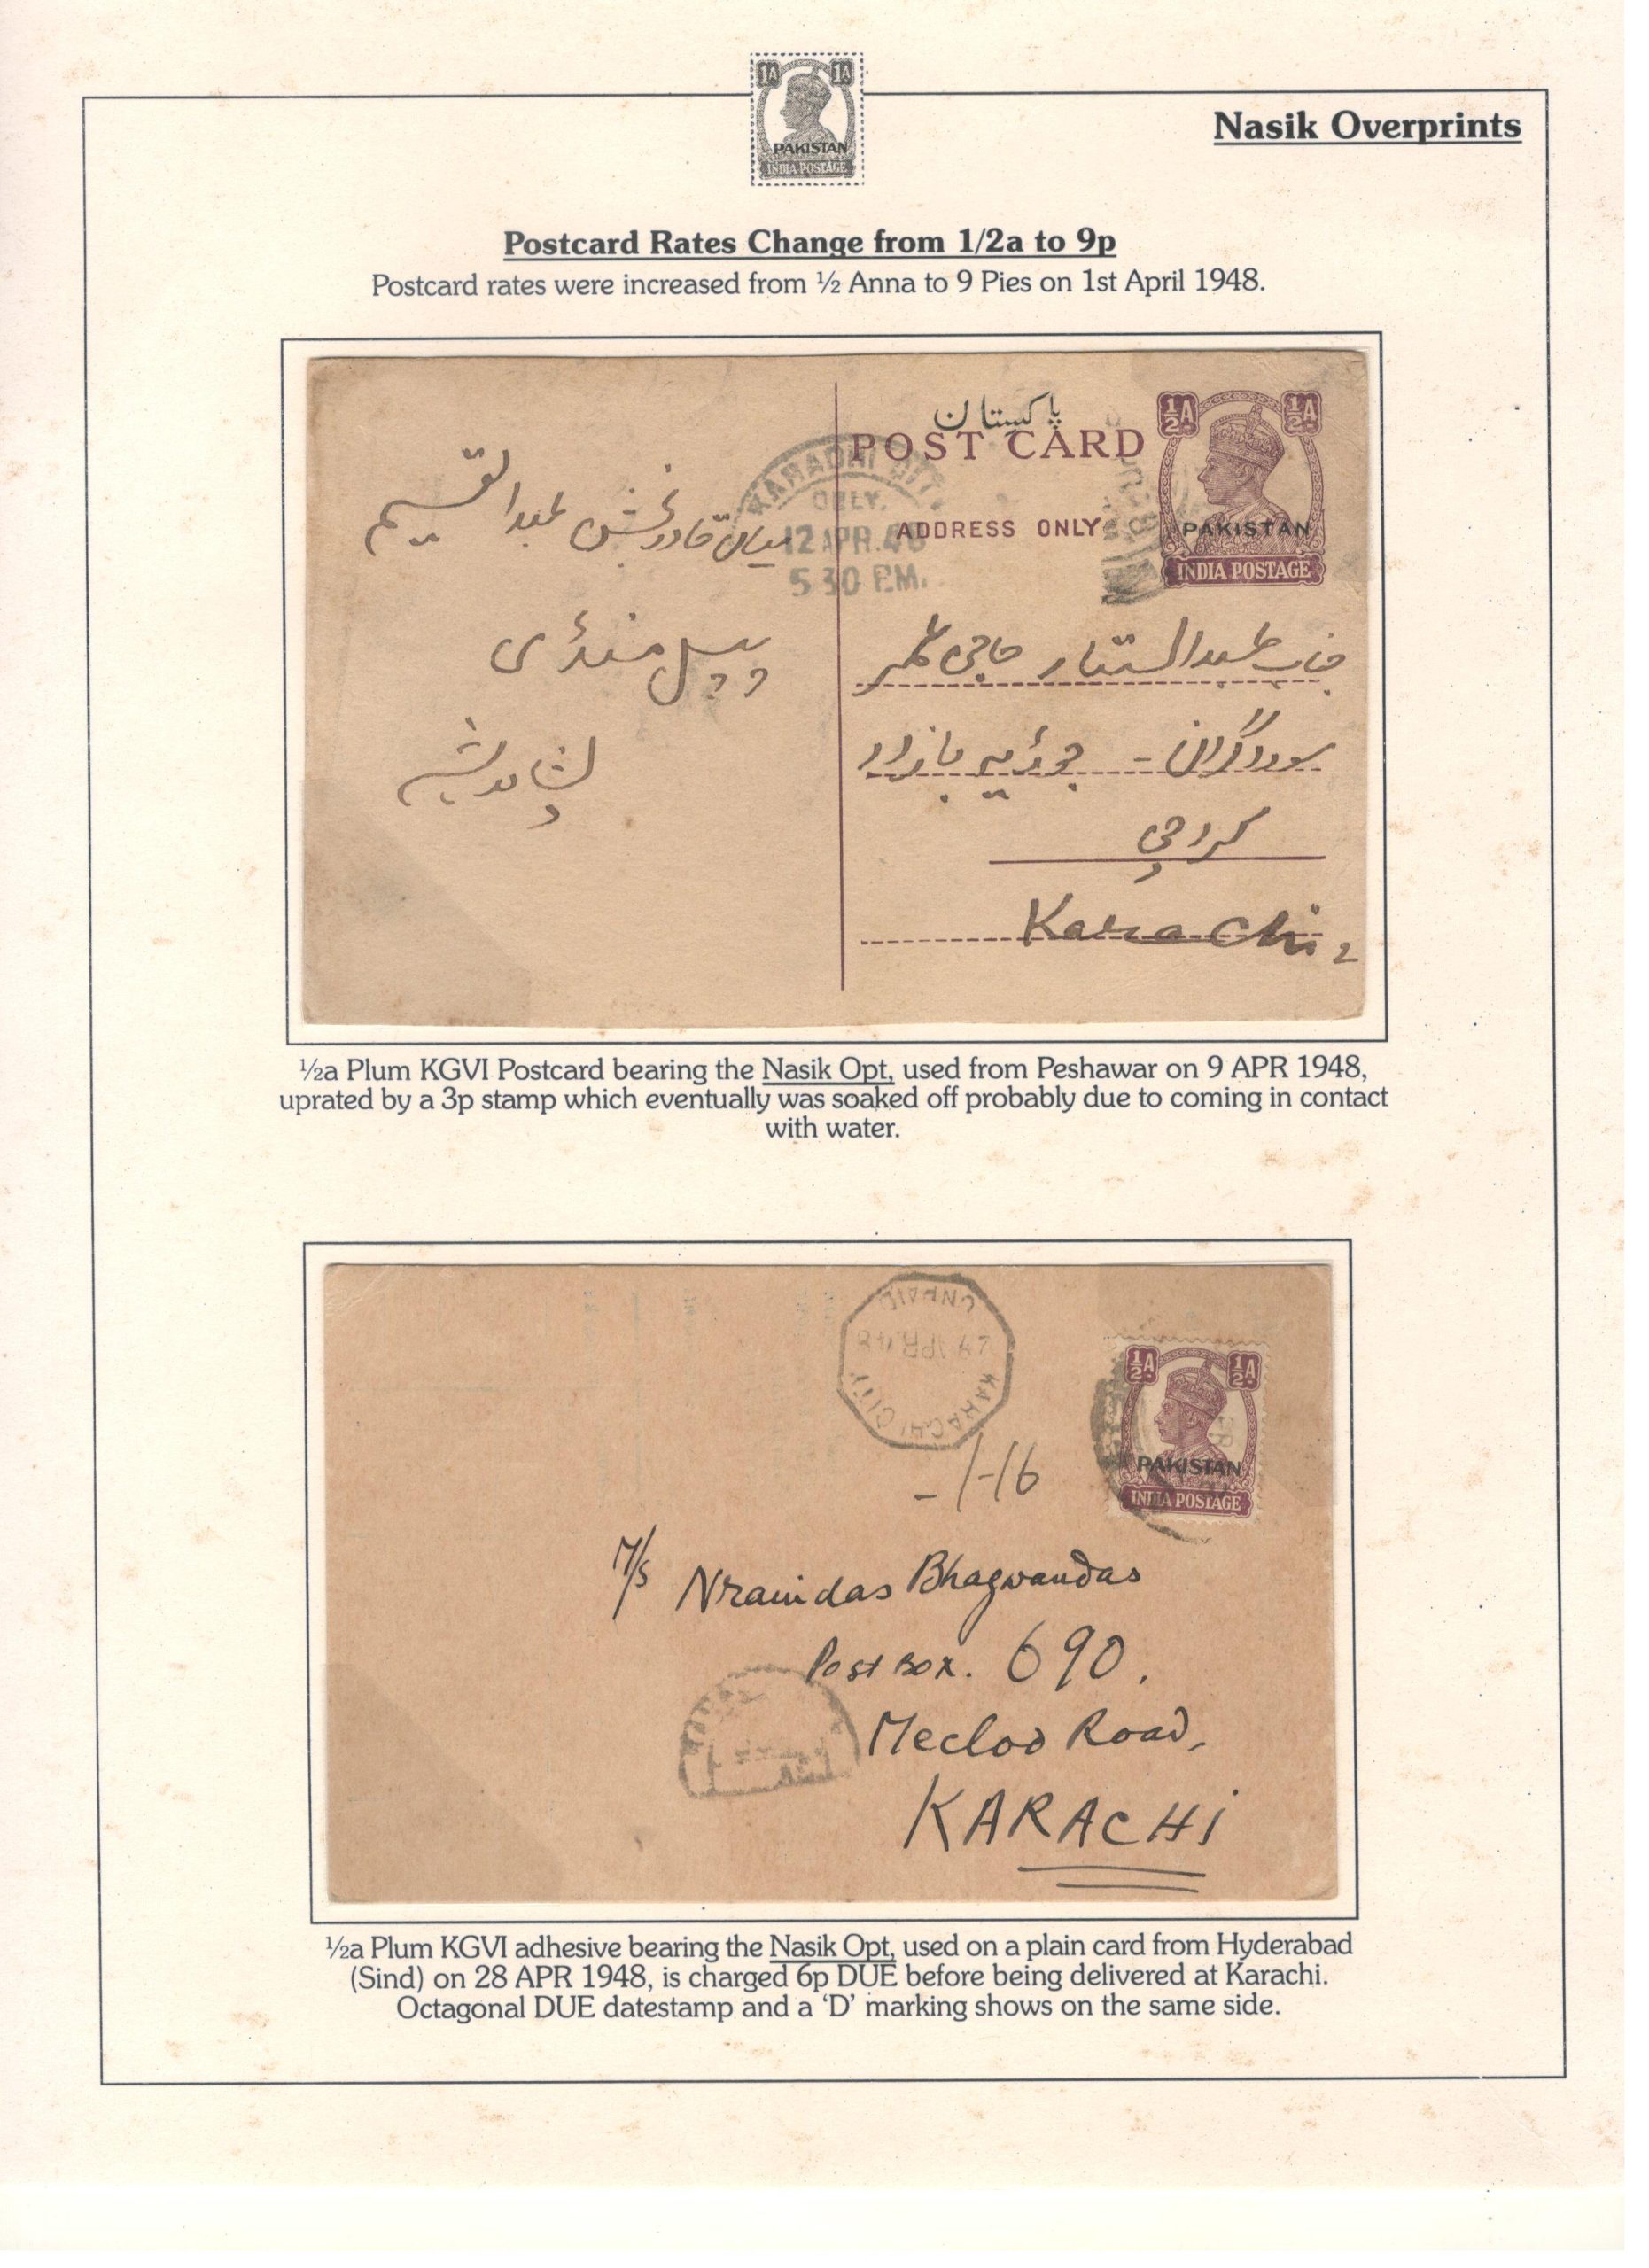 1A 1A
PAKISTAN
INDIA POSTAGE
Nasik Overprints
Postcard Rates Change from 1/2a to 9p
Postcard rates were increased from ½ Anna to 9 Pies on 1st April 1948.
پاکستان
POST CARD
ADDRESS ONLY
½A ½A
PAKISTAN
INDIA POSTAGE
KARACHI CITY
DELY.
12 APR. 48
5 30 P.M.
میاں قادر بخش عبدالقسیم
پیپل منڈی
پشاور شہر
جناب عبدالستار حاجی عمر
سوداگران - جوڑیہ بازار
کراچی
Karachi 2
½a Plum KGVI Postcard bearing the Nasik Opt, used from Peshawar on 9 APR 1948,
uprated by a 3p stamp which eventually was soaked off probably due to coming in contact
with water.
UNPAID
29 APR 48
KARACHI CITY
½A ½A
PAKISTAN
INDIA POSTAGE
-/-/6
M/S Nraindas Bhagwandas
Post Box. 690.
Mecloo Road,
KARACHI
½a Plum KGVI adhesive bearing the Nasik Opt, used on a plain card from Hyderabad
(Sind) on 28 APR 1948, is charged 6p DUE before being delivered at Karachi.
Octagonal DUE datestamp and a ‘D’ marking shows on the same side.